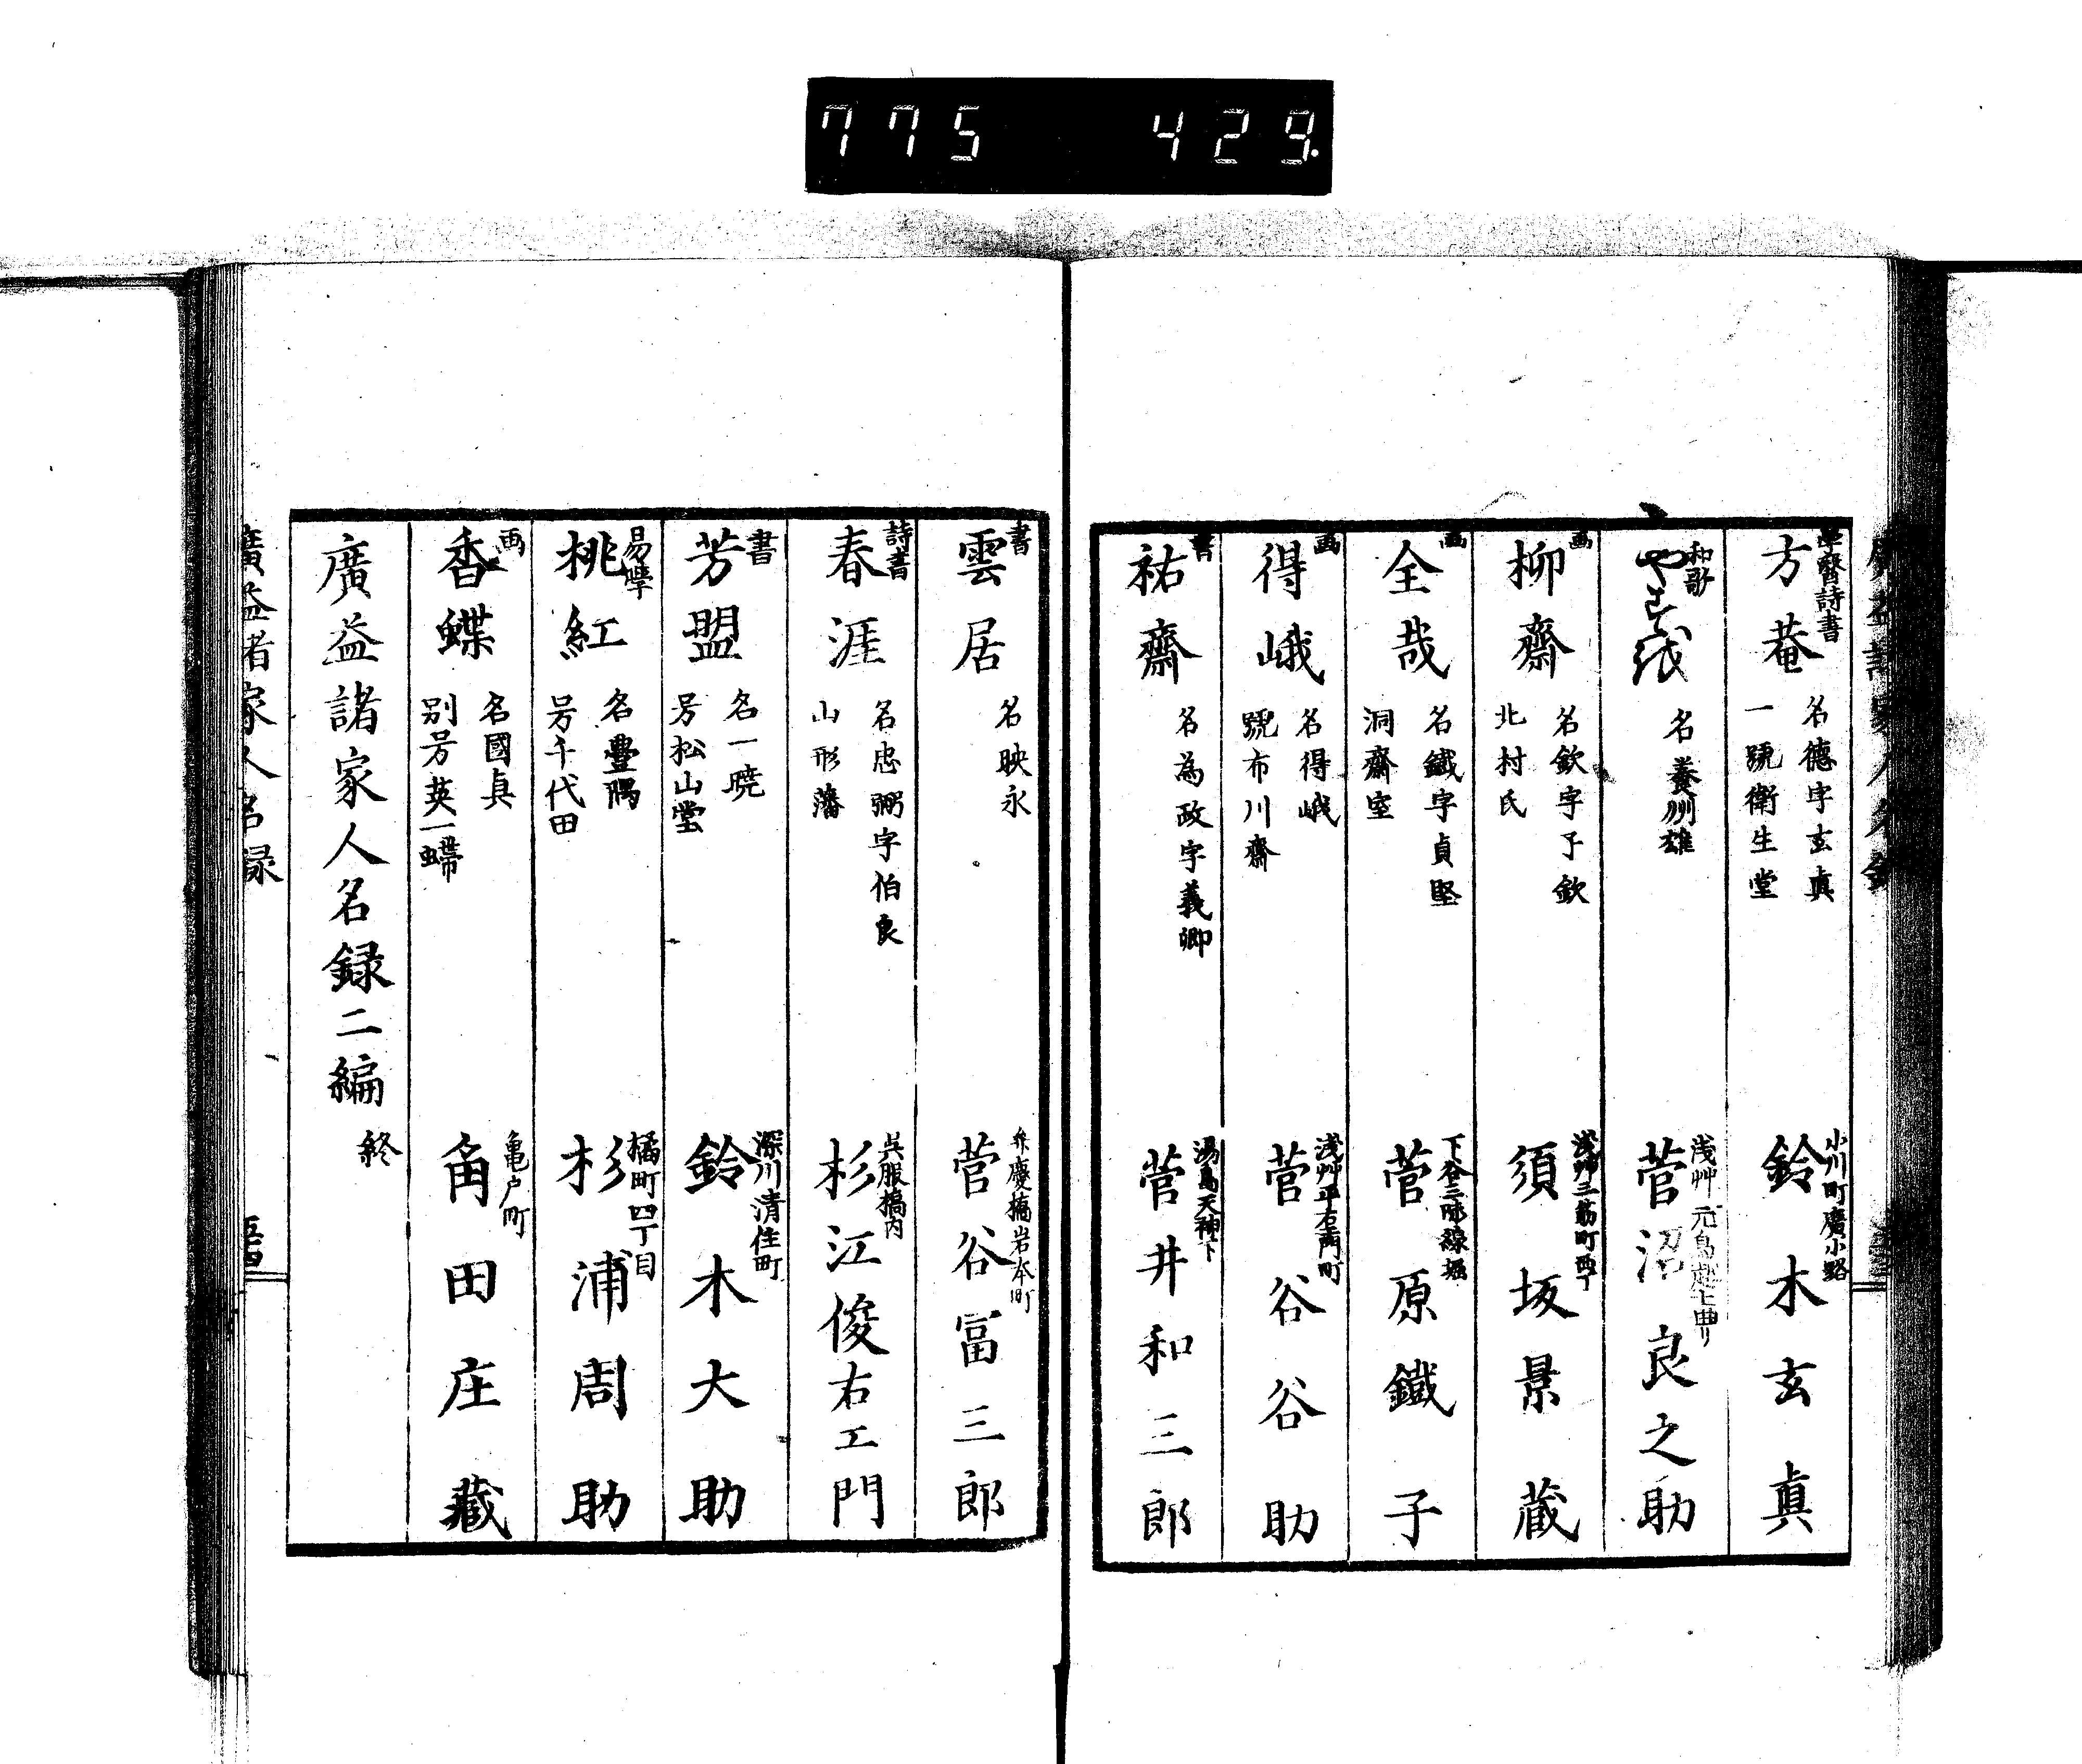 775 429.
詩書
方菴
名德字玄真
一號衛生堂
小川町廣小路
鈴木玄真
和歌
名養
浅艸元鳥越上
菅沼良之助
画
柳齋
名欽字子欽
北村氏
浅艸三筋町西丁
須坂景蔵
画
全哉
名鐵字貞堅
洞齋室
下谷三味線堀
菅原鐵子
画
得峨
名得峨
號布川齋
浅艸平右門町
菅谷谷助
書
祐齋
名為政字義卿
湯島天神下
菅井和三郎
書
雲居
名映永
弁慶橋岩本町
菅谷冨三郎
詩書
春涯
名忠弼字伯良
山形藩
呉服橋内
杉江俊右工門
書
芳盟
名一暁
号松山堂
深川清住町
鈴木大助
易學
桃紅
名豊隅
号千代田
橘町四丁目
杉浦周助
画
香蝶
名國貞
別号英一
亀戸町
角田庄蔵
廣益諸家人名録二編 終